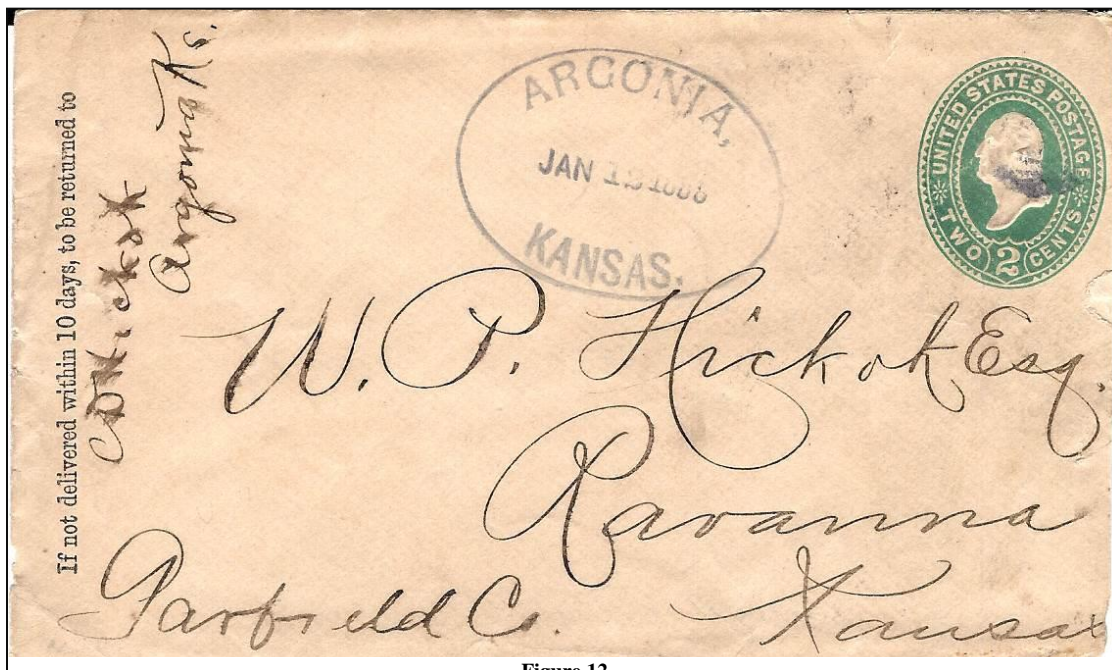 If not delivered within 10 days, to be returned to
Hickok
Argonia Ks.
ARGONIA,
JAN 12
KANSAS.
UNITED STATES POSTAGE
TWO 2 CENTS
W. P. Hickok Esq.
Ravanna
Garfield Co. Kansas
Figure 12